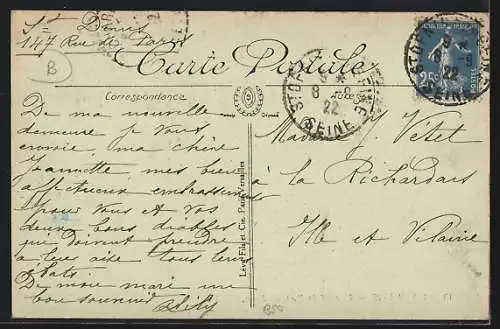 St Denis
147 Rue de Paris
B
Carte Postale
Correspondance
Adresse
ST DENIS
8 - 8
22
SEINE
25c
POSTES
De ma nouvelle
demeure je vous
envoie, ma chère
Jeannette, mes bien
affectueux embrassements
pour vous et vos
deux bons diables
qui doivent prendre
à leur aise tous leurs
ébats.
De mon mari un
bon souvenir
Madame J Vetet
à la Richardais
Ille et Vilaine
Lévy Fils et Cie, Paris-Versailles
B50